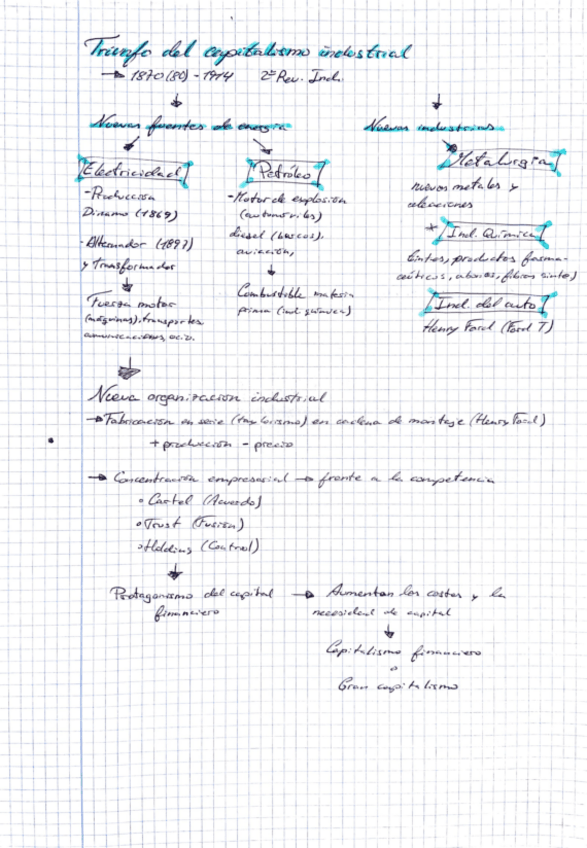 Triunfo del capitalismo industrial
→ 1870(80) - 1914 2ª Rev. Ind.
Nuevas fuentes de energía
Nuevas industrias
Electricidad
- Producción
Dinamo (1869)
- Alternador (1897)
y Transformador
Fuerza motor
(máquinas), transportes,
comunicaciones, ocio.
Petróleo
- Motor de explosión
(automóviles)
diesel (barcos),
aviación,
Combustible materia
prima (ind. química)
Metalurgia
nuevos metales y
aleaciones
* Ind. Química
tintes, productos farma-
céuticos, abonos, fibras sinté)
Ind. del auto
Henry Ford (Ford T)
Nueva organización industrial
→ Fabricación en serie (taylorismo) en cadena de montaje (Henry Ford)
+ producción - precio
→ Concentración empresarial → frente a la competencia
• Cartel (Acuerdo)
• Trust (Fusión)
• Holding (Control)
Protagonismo del capital
financiero
→ Aumentan los costes y la
necesidad de capital
Capitalismo financiero
o
Gran capitalismo